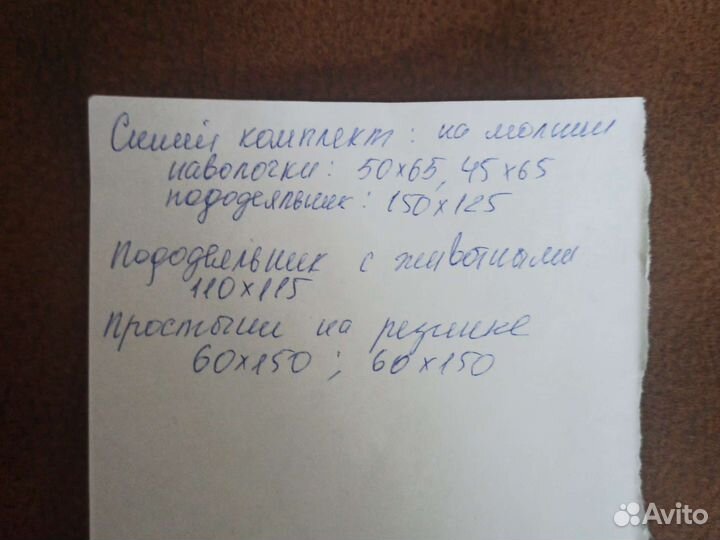 Синий комплект: на молнии
наволочки: 50x65, 45x65
пододеяльник: 150x125
Пододеяльник с животными
110x115
Простыни на резинке
60x150; 60x150
Avito